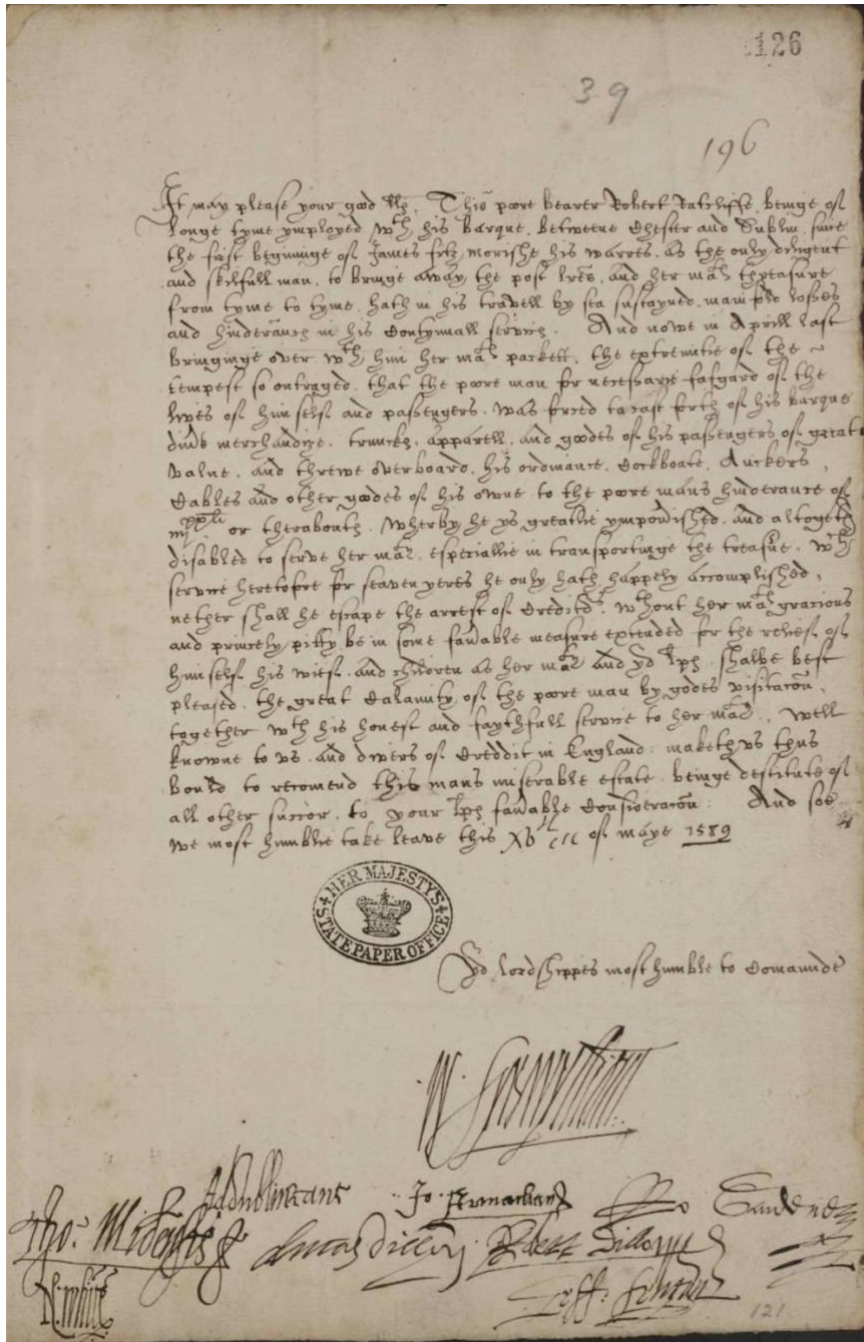 126
39
196
It may please your good llp. This poore bearer Robert Ratcliffe, beinge of
longe tyme ymployed wth his barque, betweene Chester and Dublin, since
the first begininge of James fitz morishe his warres, as the only diligent
and skilfull man, to bringe away the post lres, and her mats threasure
from tyme to tyme, hath in his travell by sea sustayned manifold losses
and hinderaunces in his Contynuall service. And nowe in Aprill last
bringinge over wth him her mats packett, the extremitie of the
tempest so outraged, that the poore man for necessarie safgard of the
lyves of him self and passengers, was forced to cast forth of his barque
divers merchandize, truncks, apparell, and goodes of his passengers of great
value, and threwe overboard, his ordinance, Cockboate, Anckers,
Cables and other goodes of his owne to the poore mans hinderance of
or theraboute. Wherby he ys greatlie ympovrished, and altogeth
disabled to serve her matie, especiallie in transportinge the treasure, wch
service heretofore for seaven yeres he only hath happely accomplished,
nether shall he escape the arrest of Creditors, wthout her mats gracious
and princely pitty be in some favorable measure extended for the relief of
himself, his wief, and children as her matie and yor lps shalbe best
pleased, the great Calamity of the poore man by godes visitacon,
together wth his honest and faythfull service to her matie, well
knowne to us, and divers of Creddit in England: maketh us thus
bould to recomend this mans miserable estate, beinge destitute of
all other succor, to your lps favorable Consideracon: And soe
we most humblie take leave this xvth of maye 1589
HER MAJESTYS
STATE PAPER OFFICE
Yor lordshippes most humble to Comaunde
W. Fitzwylliam
Ad Dublin cane
Jo. Armachan
Ro Gardener
Tho: Midensis
Lucas Dillon
Robert Dillon
N. White
Jeff: Fenton
121